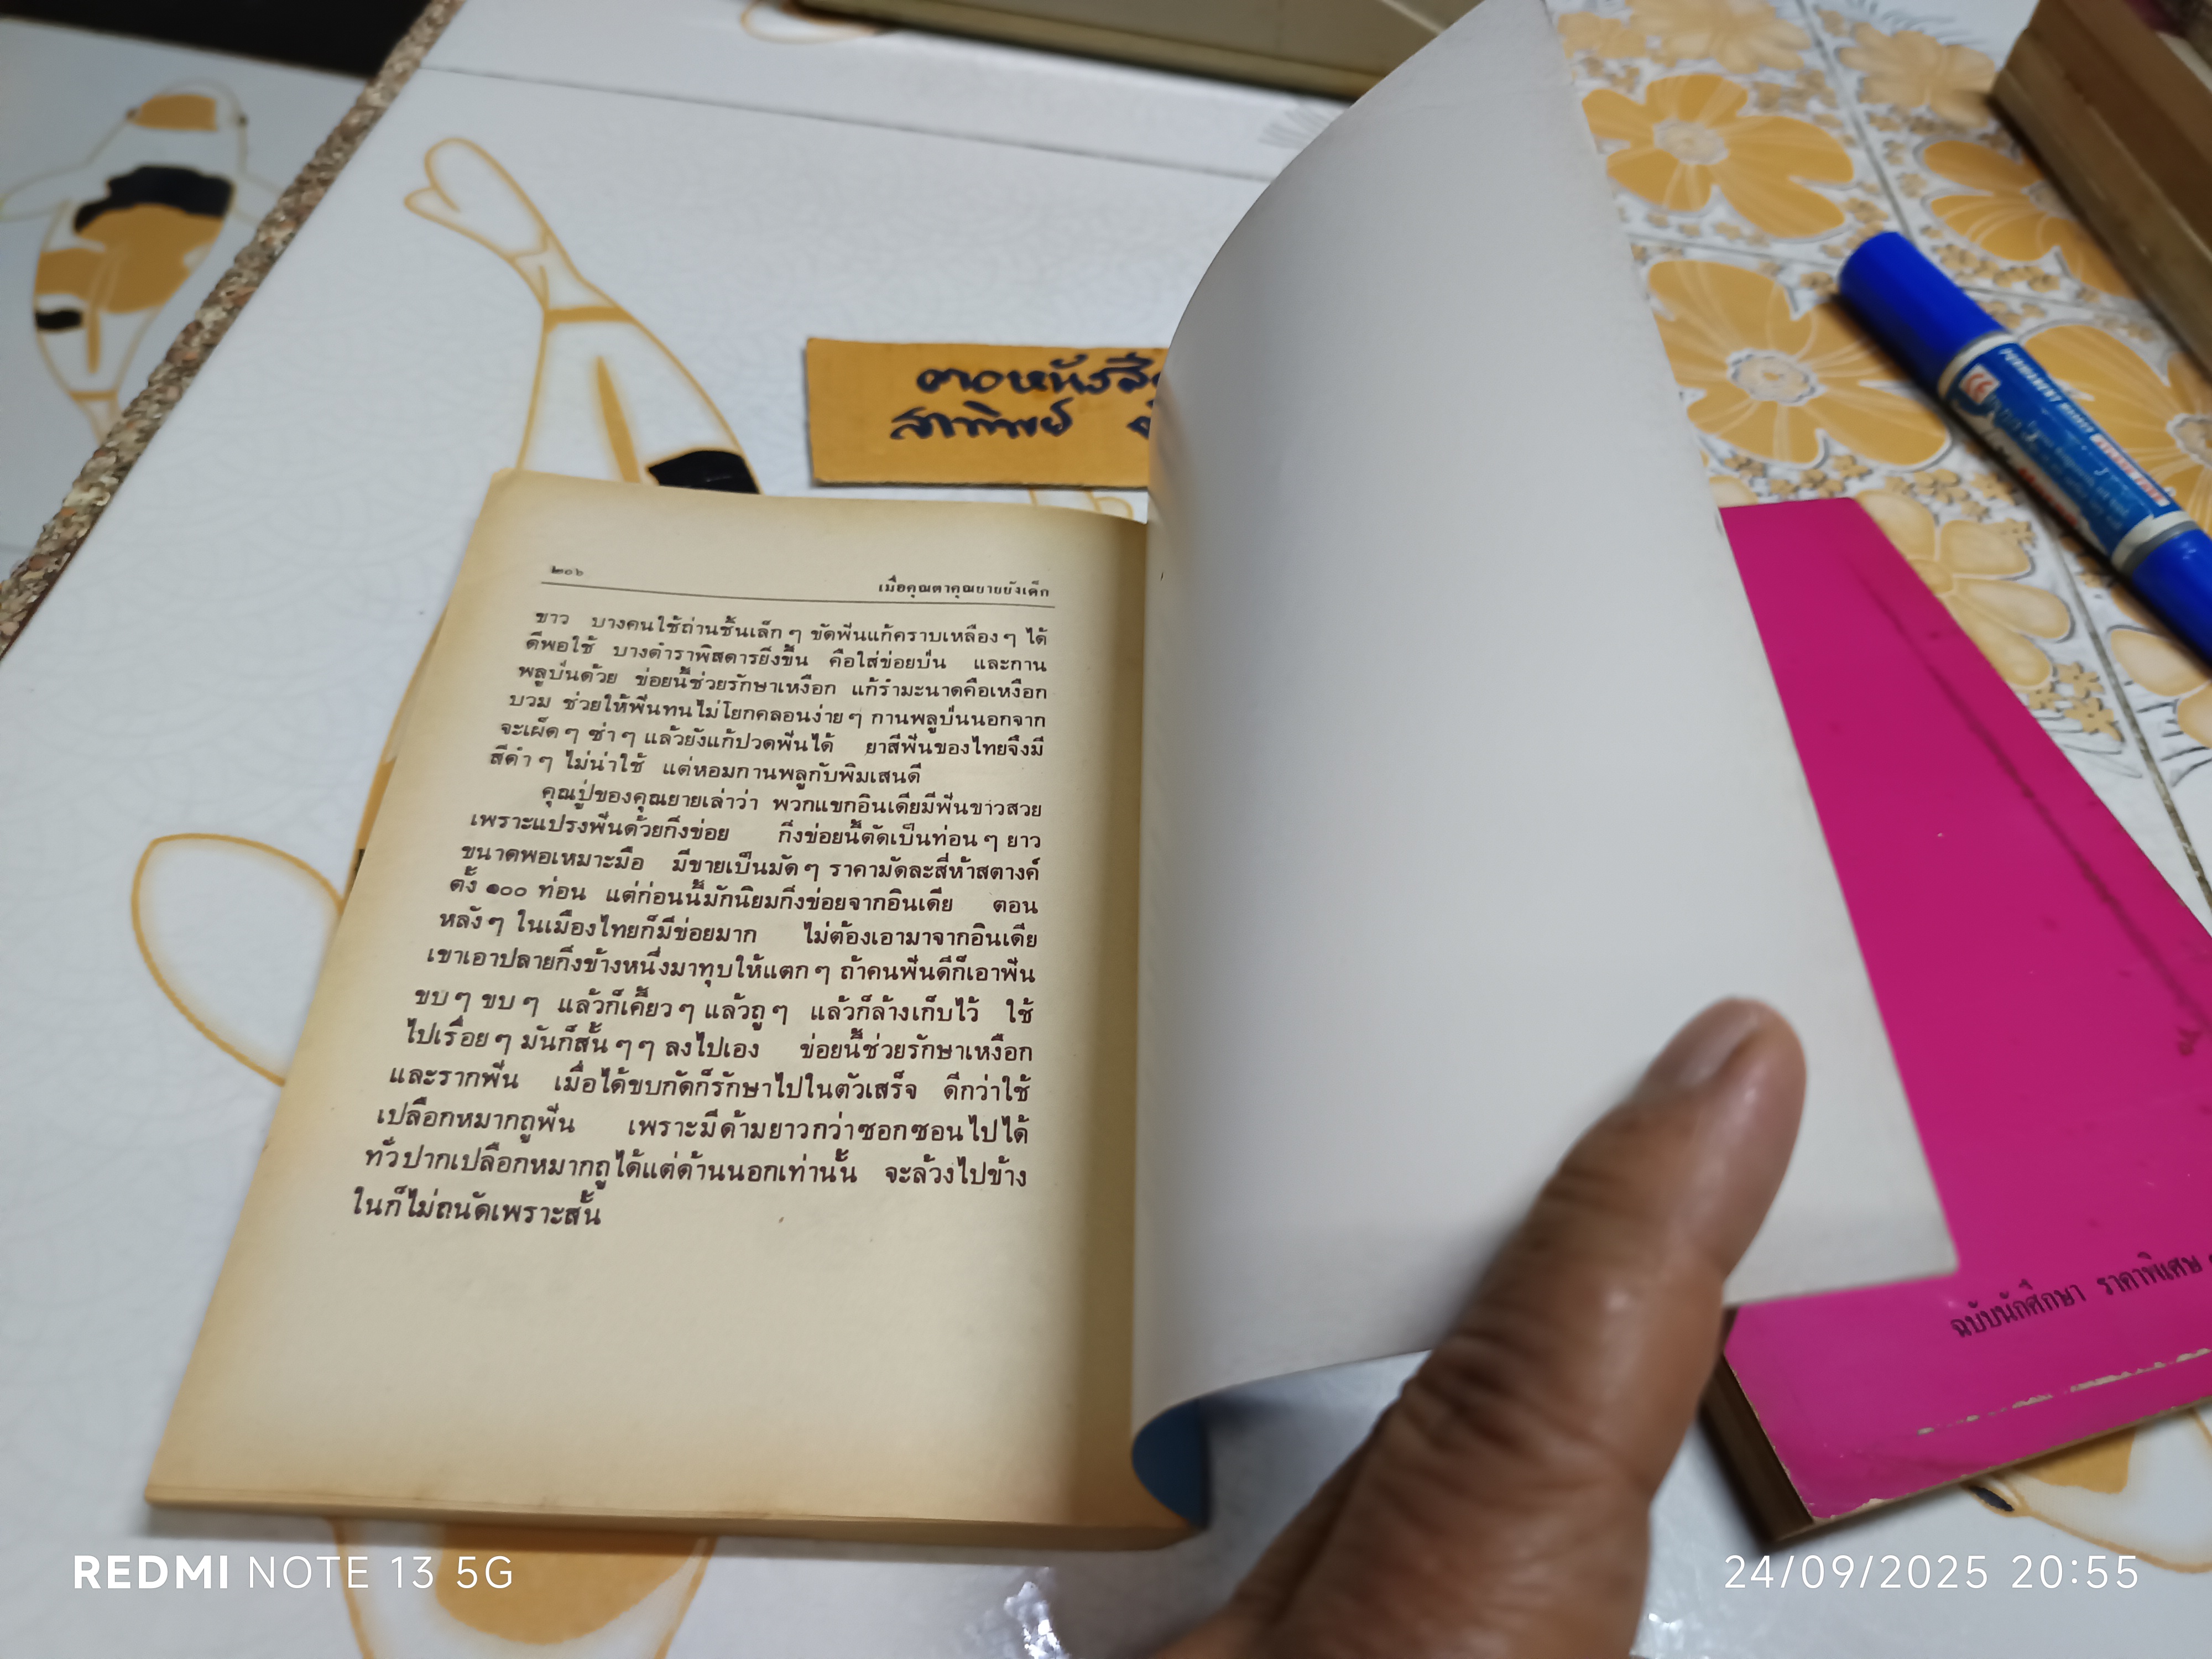 ๒๐๖
เมื่อคุณตาคุณยายยังเด็ก
ขาว บางคนใช้ถ่านชิ้นเล็ก ๆ ขัดฟันแก้คราบเหลือง ๆ ได้
ดีพอใช้ บางตำราพิสดารยิ่งขึ้น คือใส่ข่อยป่น และกาน
พลูป่นด้วย ข่อยนี้ช่วยรักษาเหงือก แก้รำมะนาดคือเหงือก
บวม ช่วยให้ฟันทนไม่โยกคลอนง่าย ๆ กานพลูป่นนอกจาก
จะเผ็ด ๆ ซ่า ๆ แล้วยังแก้ปวดฟันได้ ยาสีฟันของไทยจึงมี
สีดำ ๆ ไม่น่าใช้ แต่หอมกานพลูกับพิมเสนดี
คุณปู่ของคุณยายเล่าว่า พวกแขกอินเดียมีฟันขาวสวย
เพราะแปรงฟันด้วยกิ่งข่อย กิ่งข่อยนี้ตัดเป็นท่อน ๆ ยาว
ขนาดพอเหมาะมือ มีขายเป็นมัด ๆ ราคามัดละสี่ห้าสตางค์
ตั้ง ๑๐๐ ท่อน แต่ก่อนนี้มักนิยมกิ่งข่อยจากอินเดีย ตอน
หลัง ๆ ในเมืองไทยก็มีข่อยมาก ไม่ต้องเอามาจากอินเดีย
เขาเอาปลายกิ่งข้างหนึ่งมาทุบให้แตก ๆ ถ้าคนฟันดีก็เอาฟัน
ขบ ๆ ขบ ๆ แล้วก็เคี้ยว ๆ แล้วถู ๆ แล้วก็ล้างเก็บไว้ ใช้
ไปเรื่อย ๆ มันก็สั้น ๆ ๆ ลงไปเอง ข่อยนี้ช่วยรักษาเหงือก
และรากฟัน เมื่อได้ขบกัดก็รักษาไปในตัวเสร็จ ดีกว่าใช้
เปลือกหมากถูฟัน เพราะมีด้ามยาวกว่าซอกซอนไปได้
ทั่วปากเปลือกหมากถูได้แต่ด้านนอกเท่านั้น จะล้วงไปข้าง
ในก็ไม่ถนัดเพราะสั้น
สาทิพย์
PERMANENT MARKER
ฉบับนักศึกษา ราคาพิเศษ
REDMI NOTE 13 5G
24/09/2025 20:55